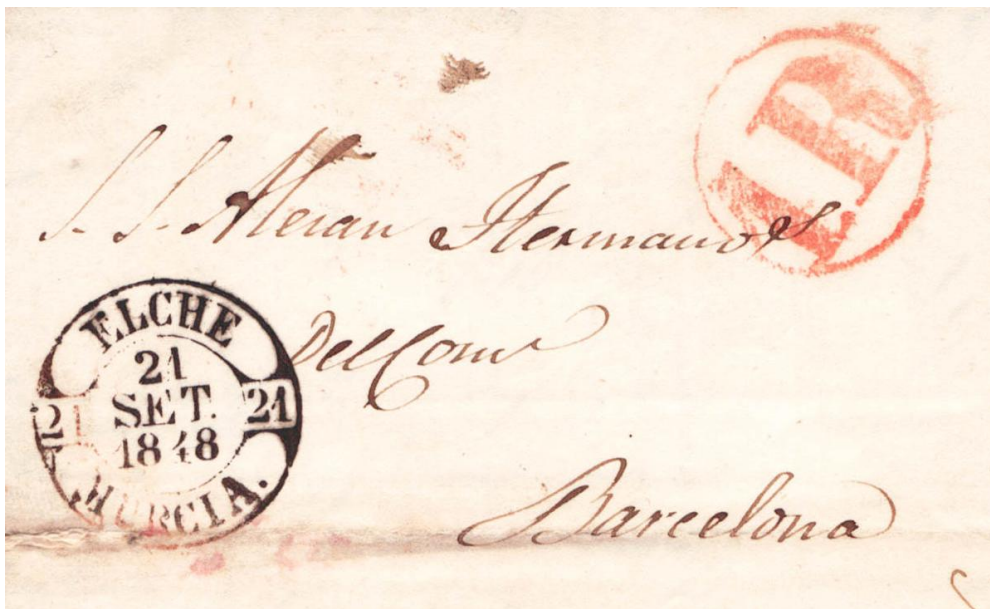 S. S. Meran Hermanos
Del Com
Barcelona
ELCHE
21
SET.
1848
21 21
MURCIA.